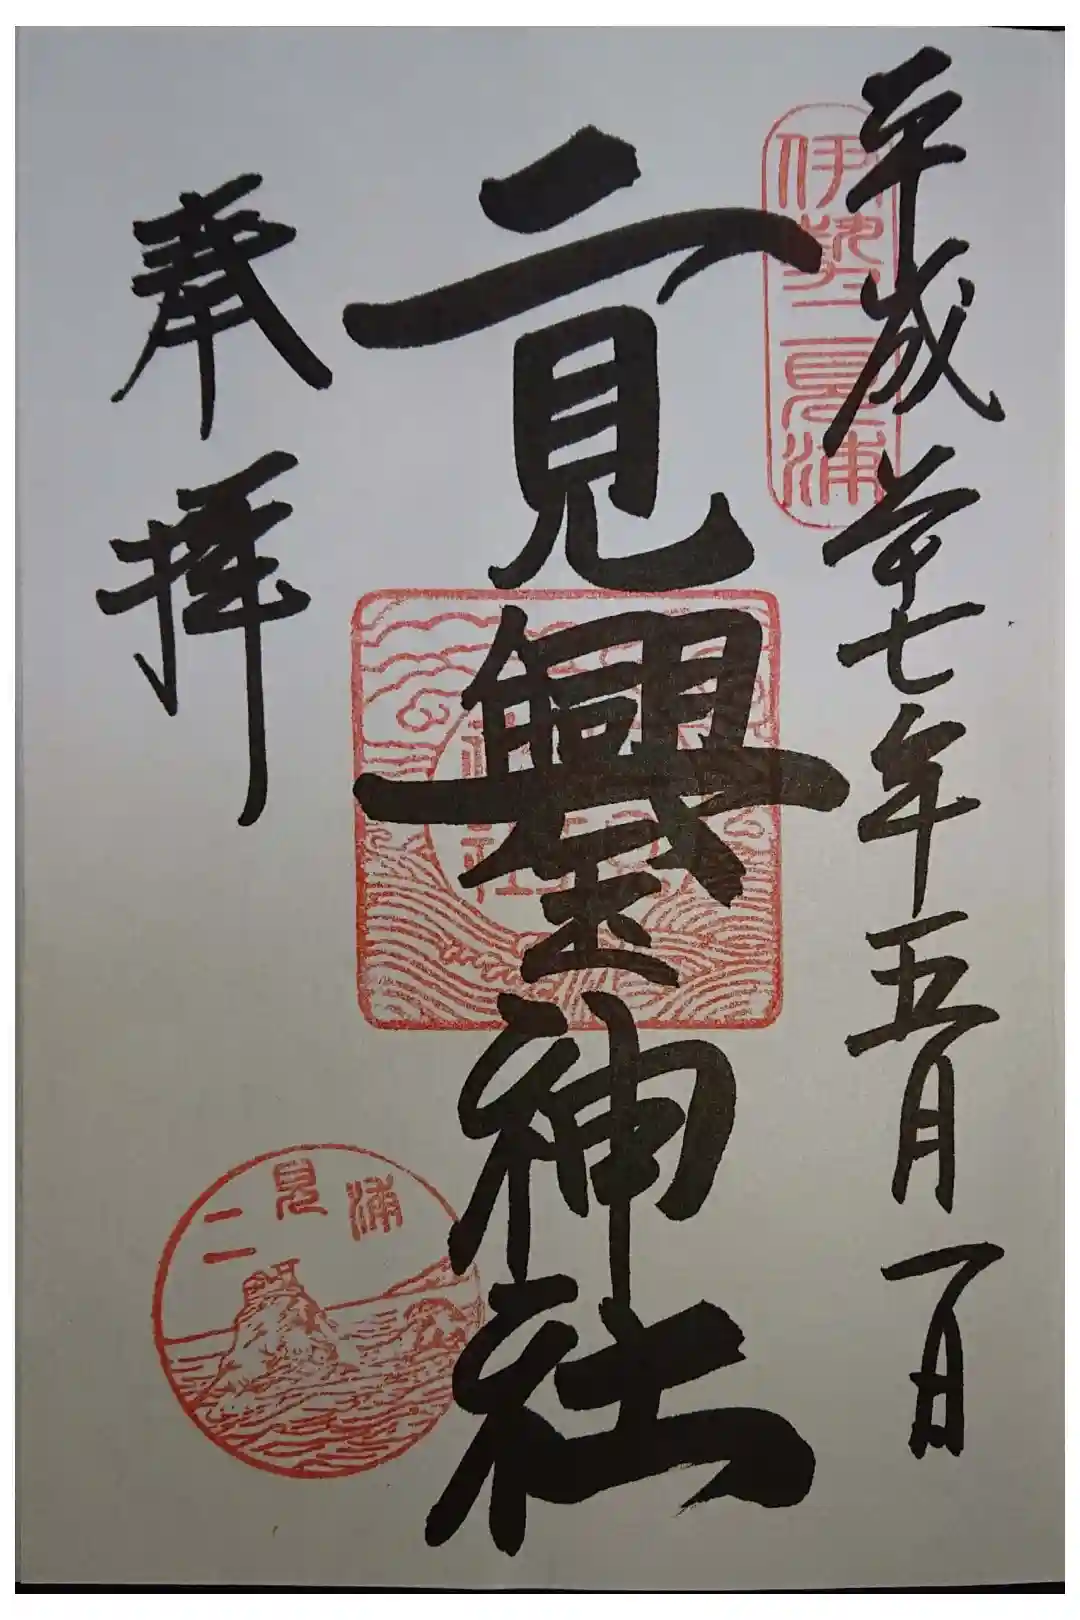 平成二十七年五月一日
伊勢二見浦
二見興玉神社
奉拝
二見浦